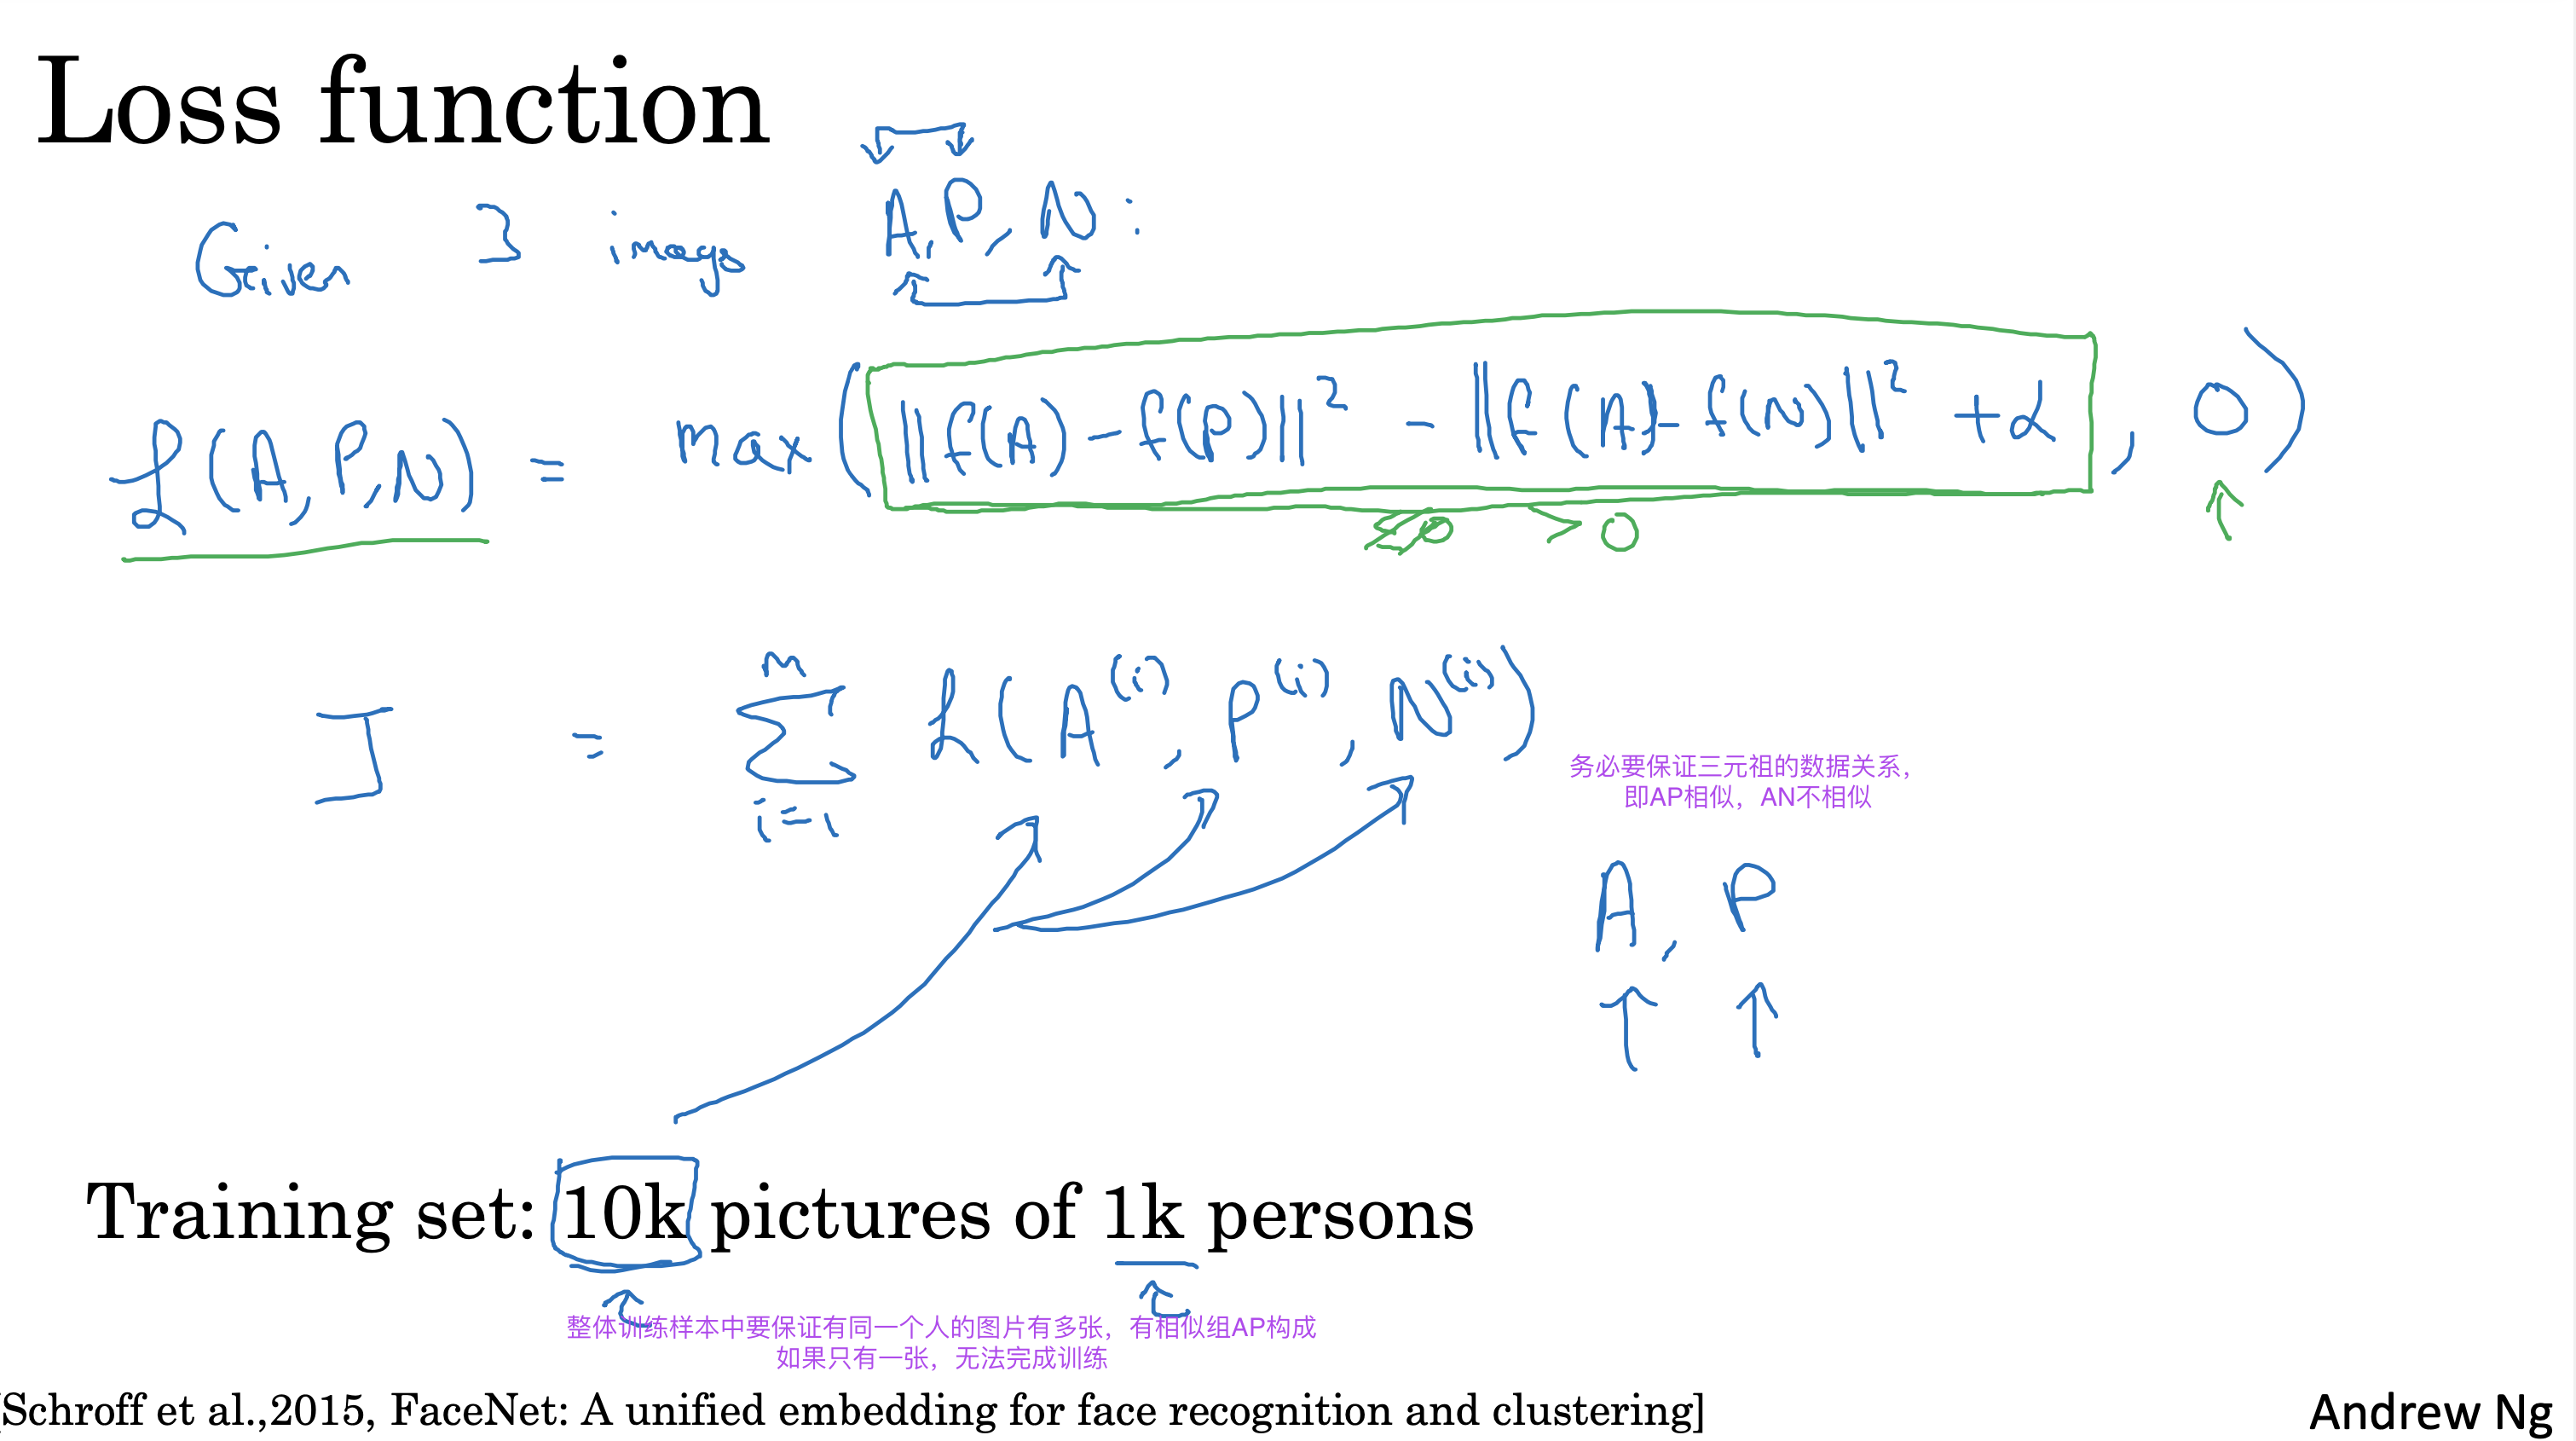 Loss function
Given 3 images A, P, N:
ℒ(A,P,N) = max(||f(A) - f(P)||² - ||f(A) - f(N)||² + α, 0)
> 0
J = Σ_{i=1}^{m} ℒ(A⁽ⁱ⁾, P⁽ⁱ⁾, N⁽ⁱ⁾)
务必要保证三元祖的数据关系，
即AP相似，AN不相似
A, P
Training set: 10k pictures of 1k persons
整体训练样本中要保证有同一个人的图片有多张，有相似组AP构成
如果只有一张，无法完成训练
[Schroff et al.,2015, FaceNet: A unified embedding for face recognition and clustering]
Andrew Ng